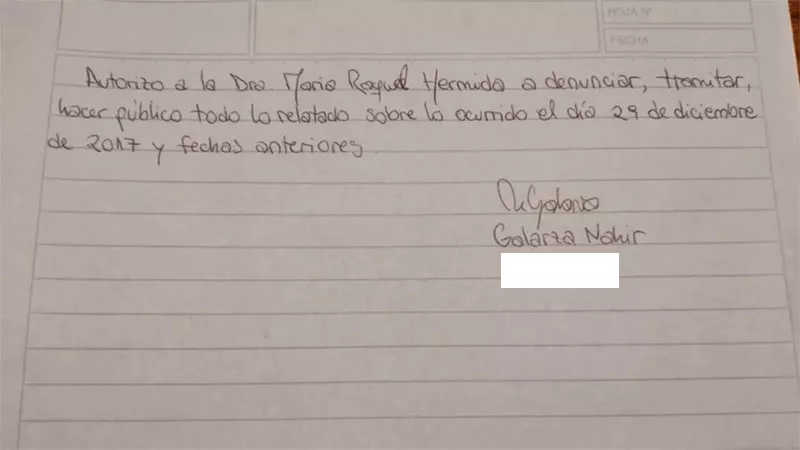 HOJA Nº
FECHA
Autorizo a la Dra. Maria Raquel Hermida a denunciar, tramitar,
hacer público todo lo relatado sobre lo ocurrido el día 29 de diciembre
de 2017 y fechas anteriores.
NGalarza
Galarza Nahir